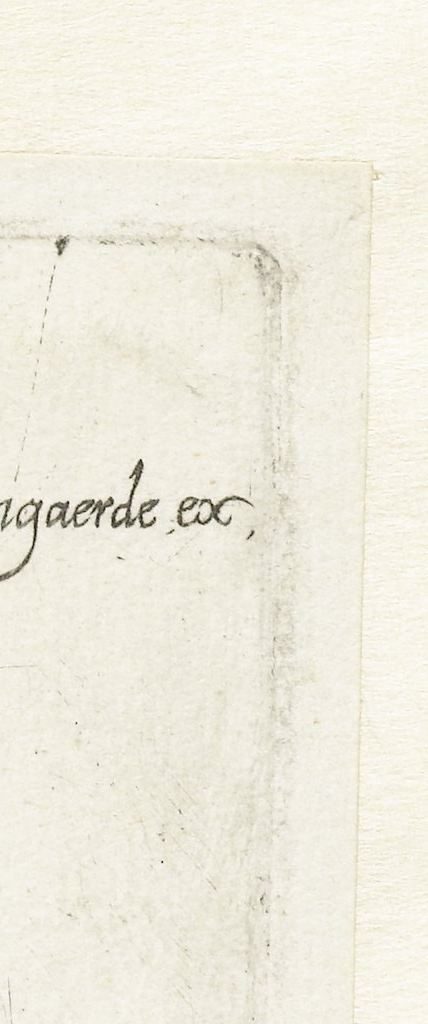 ngaerde ex,